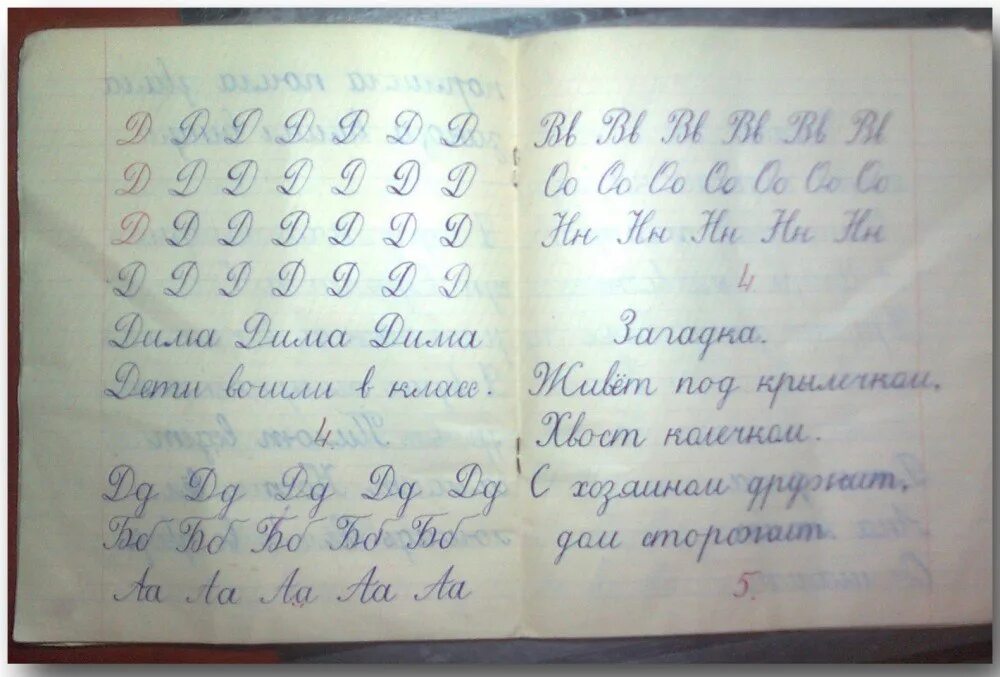 Д Д Д Д Д Д Д
Д Д Д Д Д Д Д
Д Д Д Д Д Д Д
Д Д Д Д Д Д Д
Дима Дима Дима
Дети вошли в класс.
4.
Дд Дд Дд Дд Дд
Бб Бб Бб Бб Бб
Аа Аа Аа Аа Аа
Вв Вв Вв Вв Вв Вв
Оо Оо Оо Оо Оо Оо Оо
Нн Нн Нн Нн Нн
4
Загадка.
Живёт под крылечком,
Хвост колечком.
С хозяином дружит,
дом сторожит
5.